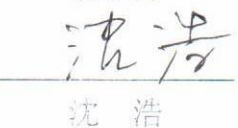 沈浩
沈 浩